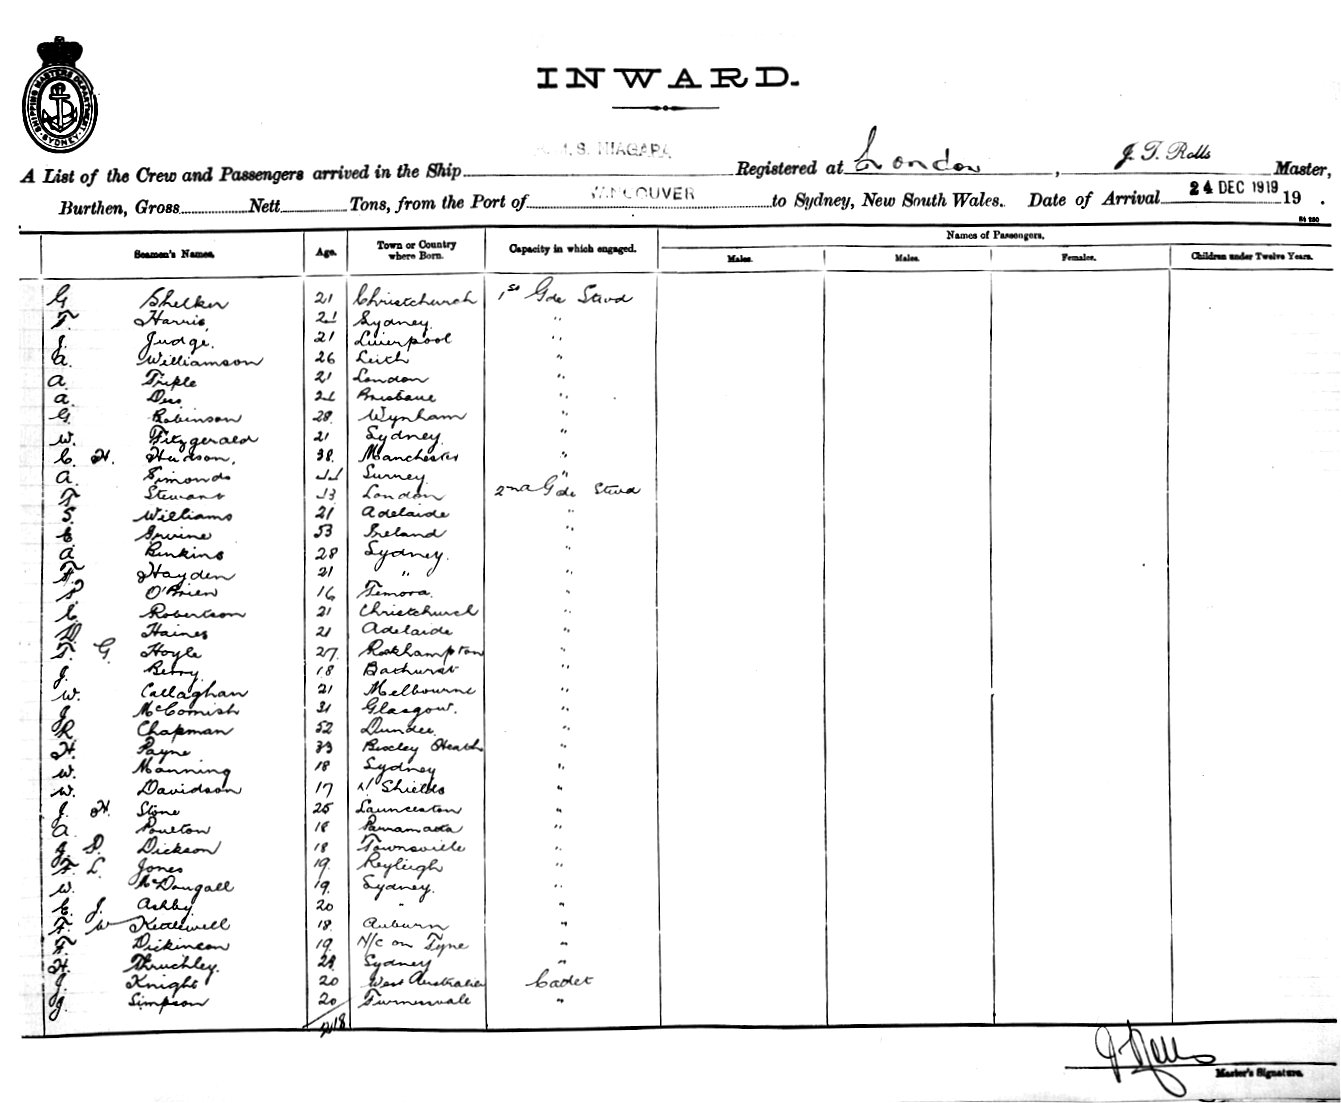 SHIPPING MASTERS DEPARTMENT SYDNEY
INWARD.
A List of the Crew and Passengers arrived in the Ship R.M.S. NIAGARA Registered at London, J. T. Rolls Master,
Burthen, Gross Nett Tons, from the Port of VANCOUVER to Sydney, New South Wales. Date of Arrival 24 DEC 1919 19 .
Seamen's Names. Age. Town or Country where Born. Capacity in which engaged. Names of Passengers.
Males. Males. Females. Children under Twelve Years.
G Shelker 21 Christchurch 1st Gde Stwd
T. Harris, 21 Sydney. "
J. Judge. 21 Liverpool "
A. Williamson 26 Leith "
A. Triple 21 London "
A. 21 Brisbane "
G. Robinson 28 Wynham "
W. Fitzgerald 21 Sydney. "
C. H. Hudson, 38 Manchester "
A. Simonds Surrey. "
F Stewart London 2nd Gde Stwd
S. Williams 21 Adelaide "
C. Irvine 53 Ireland "
A. 28 Sydney. "
F. Hayden 21 " "
O'Brien 16 Temora. "
C. Robertson 21 Christchurch "
D. Haines 21 Adelaide "
T. G. Hoyle 27. Rockhampton "
J. Berry. 18 Bathurst "
W. Callaghan 21 Melbourne "
J. McComish 31 Glasgow. "
R. Chapman 52 Dundee. "
H. Payne 33 Bexley Heath "
W. Manning 18 Sydney "
W. Davidson 17 N Shields "
J. H. Stone 25 Launceston "
A. Poulton 18 Parramatta "
J. D. Dickson 18 Townsville "
F. L. Jones 19. Reyleigh "
W. McDougall 19. Sydney. "
C. J. Ashby 20 " "
F. W Kettlewell 18. Auburn "
F. Dickinson 19. N/c on Tyne "
H. Thruchley. Sydney "
J. Knight 20 West Australia Cadet
J. Simpson 20 "
J. T. Rolls
Master's Signature.